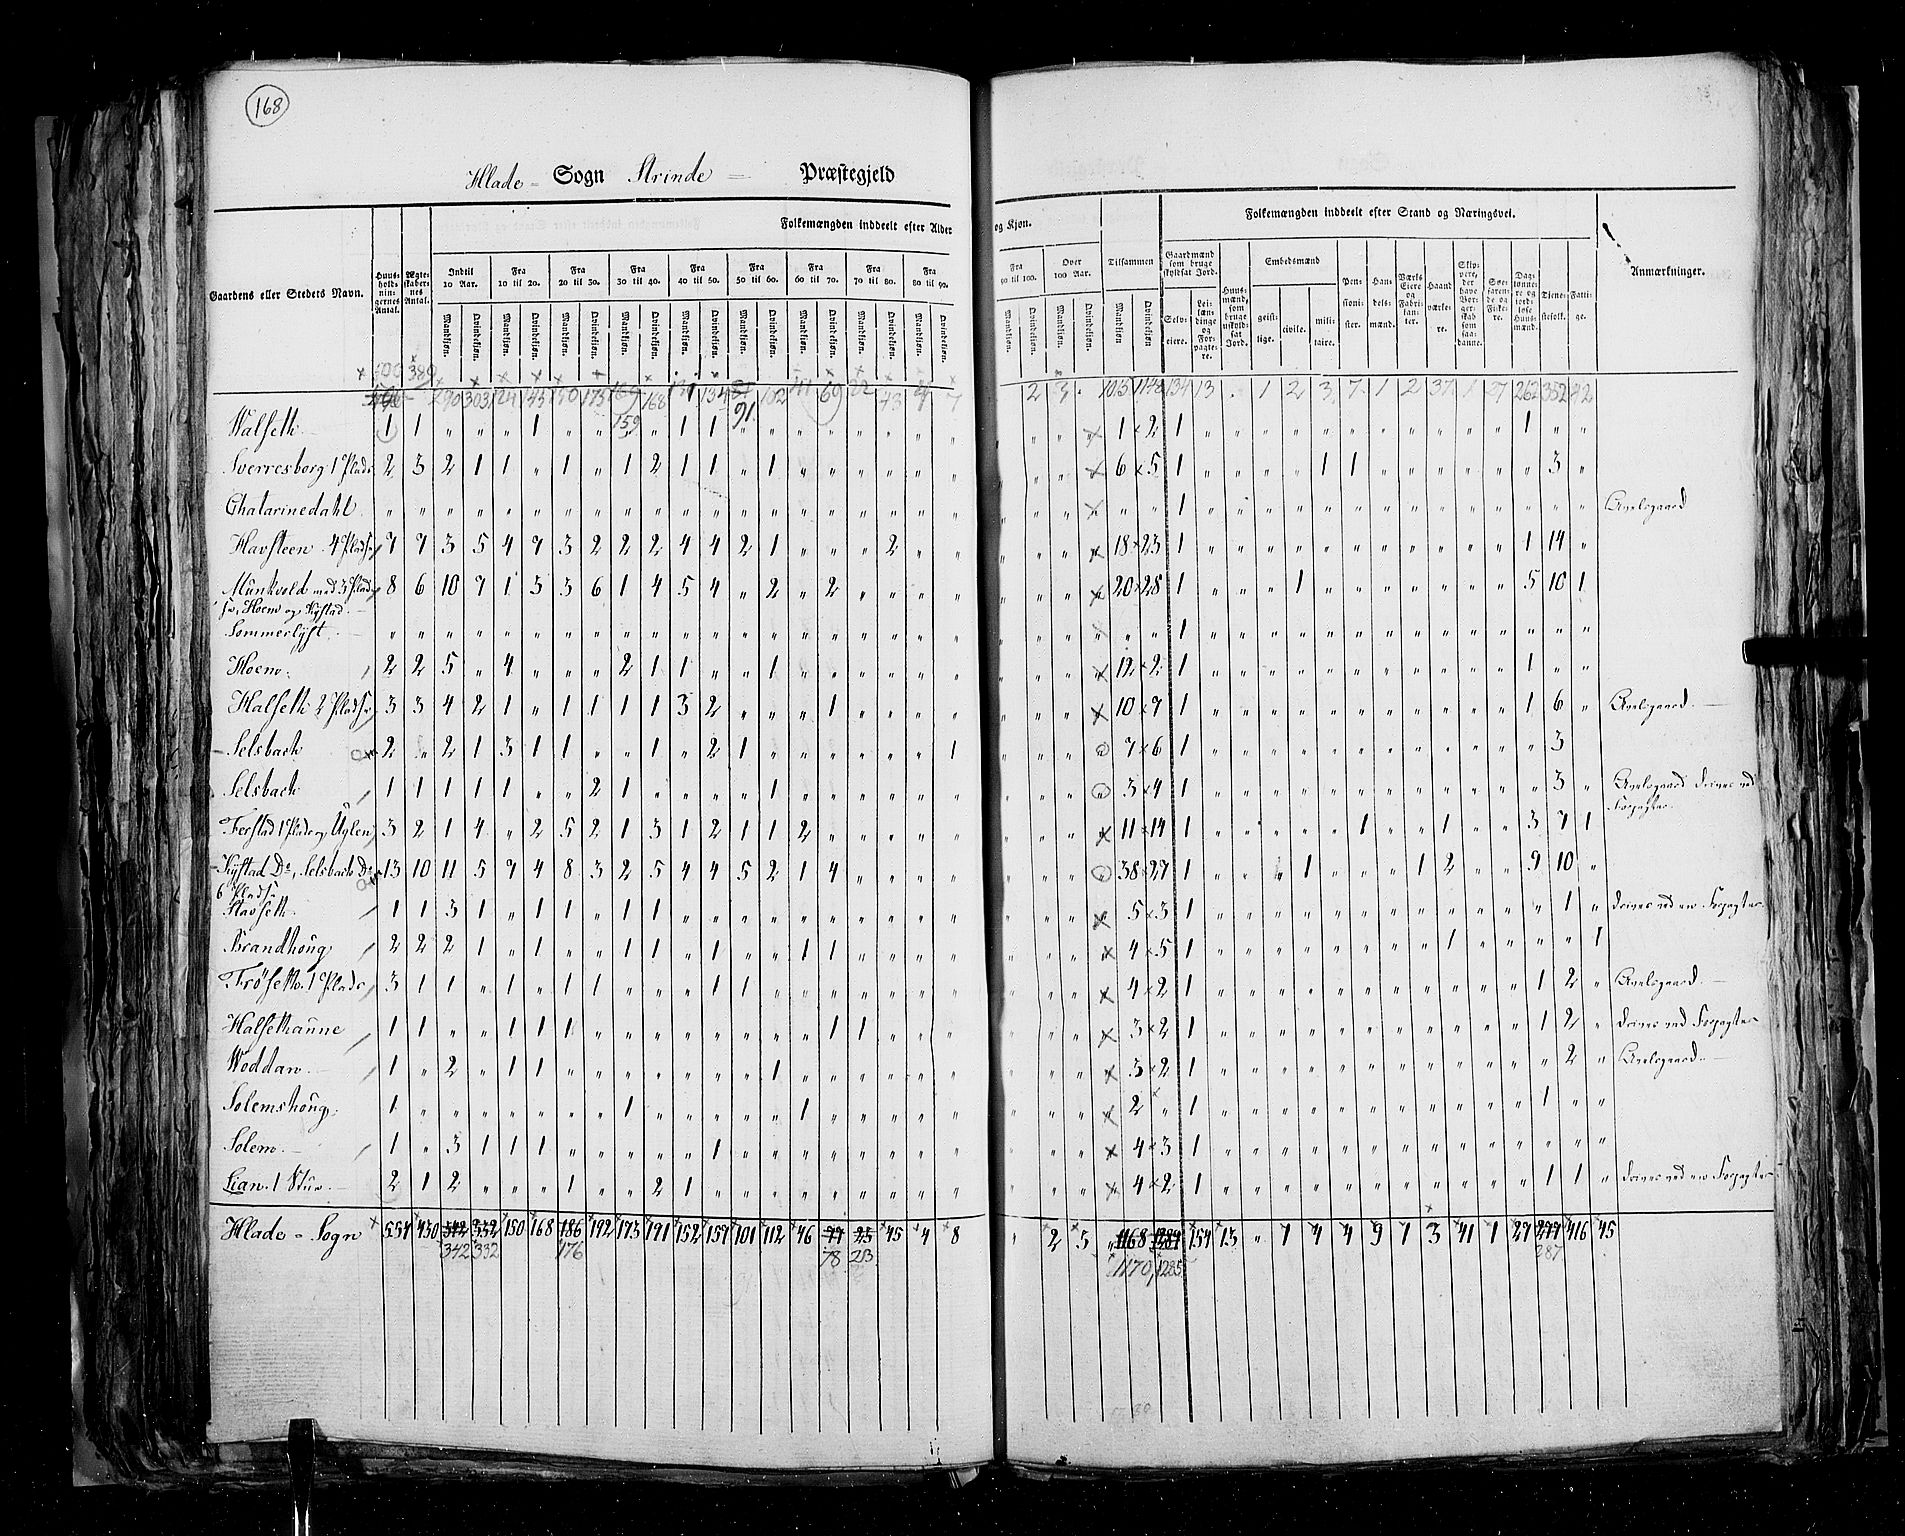 168
Hlade - Sogn Strinde — Præstegjeld
Folkemængden inddeelt efter Alder og Kjøn.
Folkemængden inddeelt efter Stand og Næringsvei.
Gaardens eller Stedets Navn.
Huusholdningernes Antal.
Ægteskabernes Antal.
Indtil 10 Aar.
Fra 10 til 20.
Fra 20 til 30.
Fra 30 til 40.
Fra 40 til 50.
Fra 50 til 60.
Fra 60 til 70.
Fra 70 til 80.
Fra 80 til 90.
Fra 90 til 100.
Over 100 Aar.
Tilsammen
Mandkjøn. Qvindekjøn.
Gaardmænd som bruge skyldsat Jord.
Selveiere.
Leilændinge og Forpagtere.
Huusmænd, som bruge uskyldsat Jord.
Embedsmænd
geistlige.
civile.
militaire.
Pensionister.
Handelsmænd.
Værks Eiere og Fabrikanter.
Haandværkere.
Skippere, der have Borgerskab som saadanne.
Dagslønnere og jordløse Huusmænd.
Tjenestefolk.
Fattige.
Anmærkninger.
Walseth 1 1 " " " 1 " " " " 1 1 " " " " " " " " 1 2 1 1
Sverresborg 1 Plads 2 3 2 1 1 " 1 " 1 2 1 1 " 1 " " " " " " 6 5 1 1 1 3
Chatarinedahl 1 Avelsgaard
Havsteen 4 Pladse 7 7 3 5 4 7 3 2 2 2 4 4 2 1 " " " 2 " " 18 23 1 1 14
Munkvold med 3 Pladse, Hoem og Kystad. 8 6 10 7 1 3 3 6 1 4 5 4 " 2 " 2 " " " " 20 28 1 1 5 10 1
Sommerlyst 1
Hoem. 2 2 5 " 4 " " " 2 1 1 " " 1 " " " " " " 12 2 1 1
Halseth 2 Pladse 3 3 4 2 1 " 1 1 1 1 3 2 " " " 1 " " " " 10 7 1 1 6 Avelsgaard.
Selsbach 2 " 2 1 3 1 1 " " 1 " 2 1 " " " " " " 1 7 6 1 3
Selsbach 1 1 1 1 1 " " 2 1 " " " " 1 " " " " " " 3 4 1 3 Avelsgaard drives ved Forpagter.
Ferstad 1 Plads og Uglen 3 2 1 4 " 2 5 2 1 3 1 2 1 1 2 " " " " " 11 14 1 1 1 3 7 1
Kystad Do, Selsbach Do 6 Pladse 13 10 11 5 7 4 8 3 2 5 4 4 5 2 1 4 " " " " 38 27 1 1 1 2 9 10
Stavseth. 1 1 3 1 " 1 1 " 1 1 " " " " " " " " " " 5 3 1 1 drives ved en Forpagter.
Brandhoug 2 2 2 1 " 1 " " 1 1 " 1 " " 1 1 " " " " 4 5 1 1 1
Frøseth. 1 Plads 3 1 1 " 1 " 1 1 " " " 1 1 " " " " " " " 4 2 1 1 2 Avelsgaard.
Halsethaune 1 1 " " 1 1 1 " " " " " " " " 1 1 " " " 3 2 1 1 2 drives ved Forpagter
Woddan. 1 " 2 " 1 1 " " " " " " " 1 " " " " " " 3 2 1 2 Avelsgaard.
Solemshoug. 1 " " " " " " " 1 " " " " " 1 " " " " " 2 " 1 1
Solem. 1 " 3 1 1 1 " " " " " 1 " " " " " " " " 4 3 1
Lian. 1 Stue 2 1 2 " " " 1 " " 2 1 " " " " " " " " " 4 2 1 1 1 drives ved en Forpagter
Hlade - Sogn 557 430 342 332 150 168 186 192 173 191 152 157 101 112 46 77 23 45 4 8 " 2 5 " 1168 1284 157 13 " 7 4 4 9 7 3 41 1 27 277 416 45
342 332 176 78 23 1170 1285 287